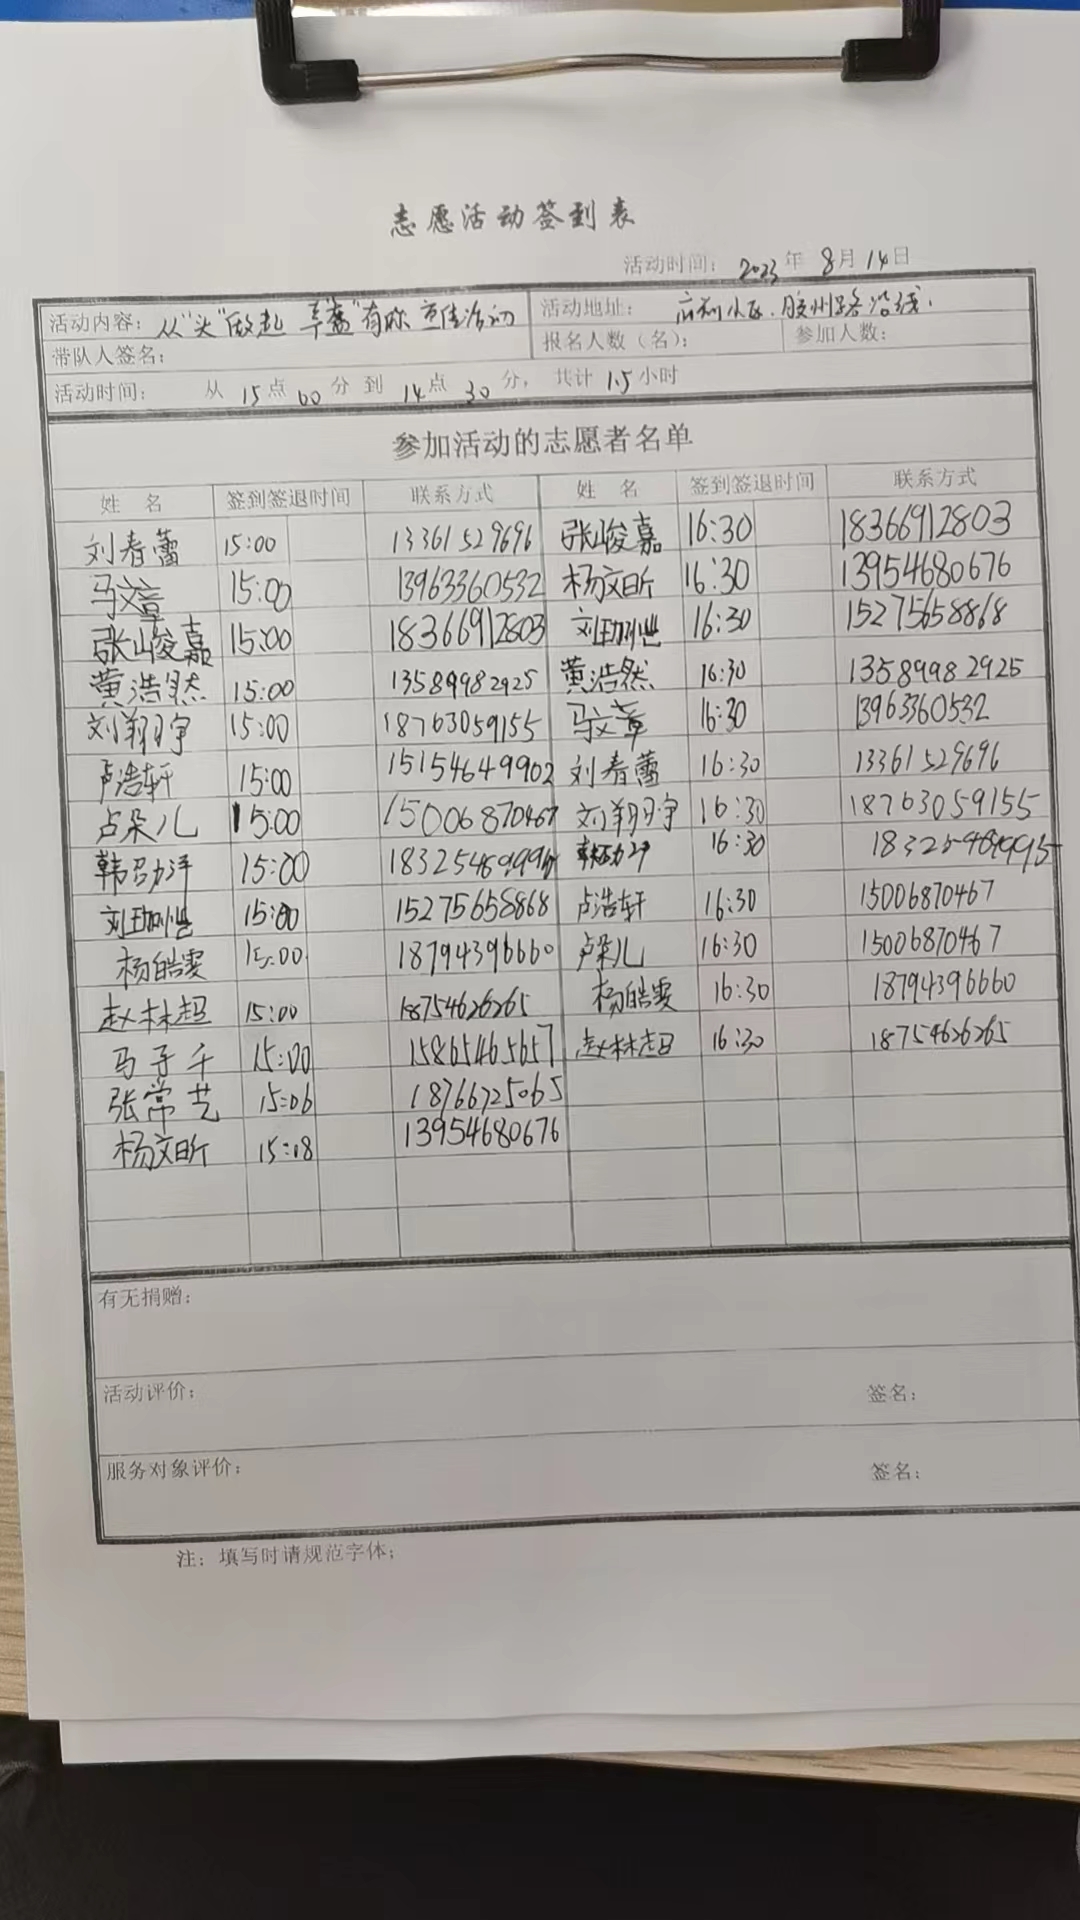 志愿活动签到表
活动时间： 2023 年 8 月 14 日
活动内容： 从"头"做起 "盔"有你 宣传活动
活动地址： 小区、胶州路沿线.
带队人签名：
报名人数（名）：
参加人数：
活动时间： 从 15 点 00 分 到 14 点 30 分， 共计 1.5 小时
参加活动的志愿者名单
姓 名 签到签退时间 联系方式 姓 名 签到签退时间 联系方式
刘春蕾 15:00 13361529696 张峻嘉 16:30 18366912803
马文章 15:00 13963360532 杨文昕 16:30 13954680676
张峻嘉 15:00 18366912803 刘 16:30 15275658868
黄浩然 15:00 13589982925 黄浩然 16:30 13589982925
刘翔宇 15:00 18763059155 马文章 16:30 13963360532
卢浩轩 15:00 15154649902 刘春蕾 16:30 13361529696
卢朵儿 15:00 15006870467 刘翔宇 16:30 18763059155
韩 15:00 韩 16:30
刘 15:00 15275658868 卢浩轩 16:30 15006870467
杨皓雯 15:00 18794396660 卢朵儿 16:30 15006870467
赵林超 15:00 18754626265 杨皓雯 16:30 18794396660
马子千 15:00 15865465657 赵林超 16:30 18754626265
张常艺 15:06 18766725065
杨文昕 15:08 13954680676
有无捐赠：
活动评价： 签名：
服务对象评价： 签名：
注：填写时请规范字体；